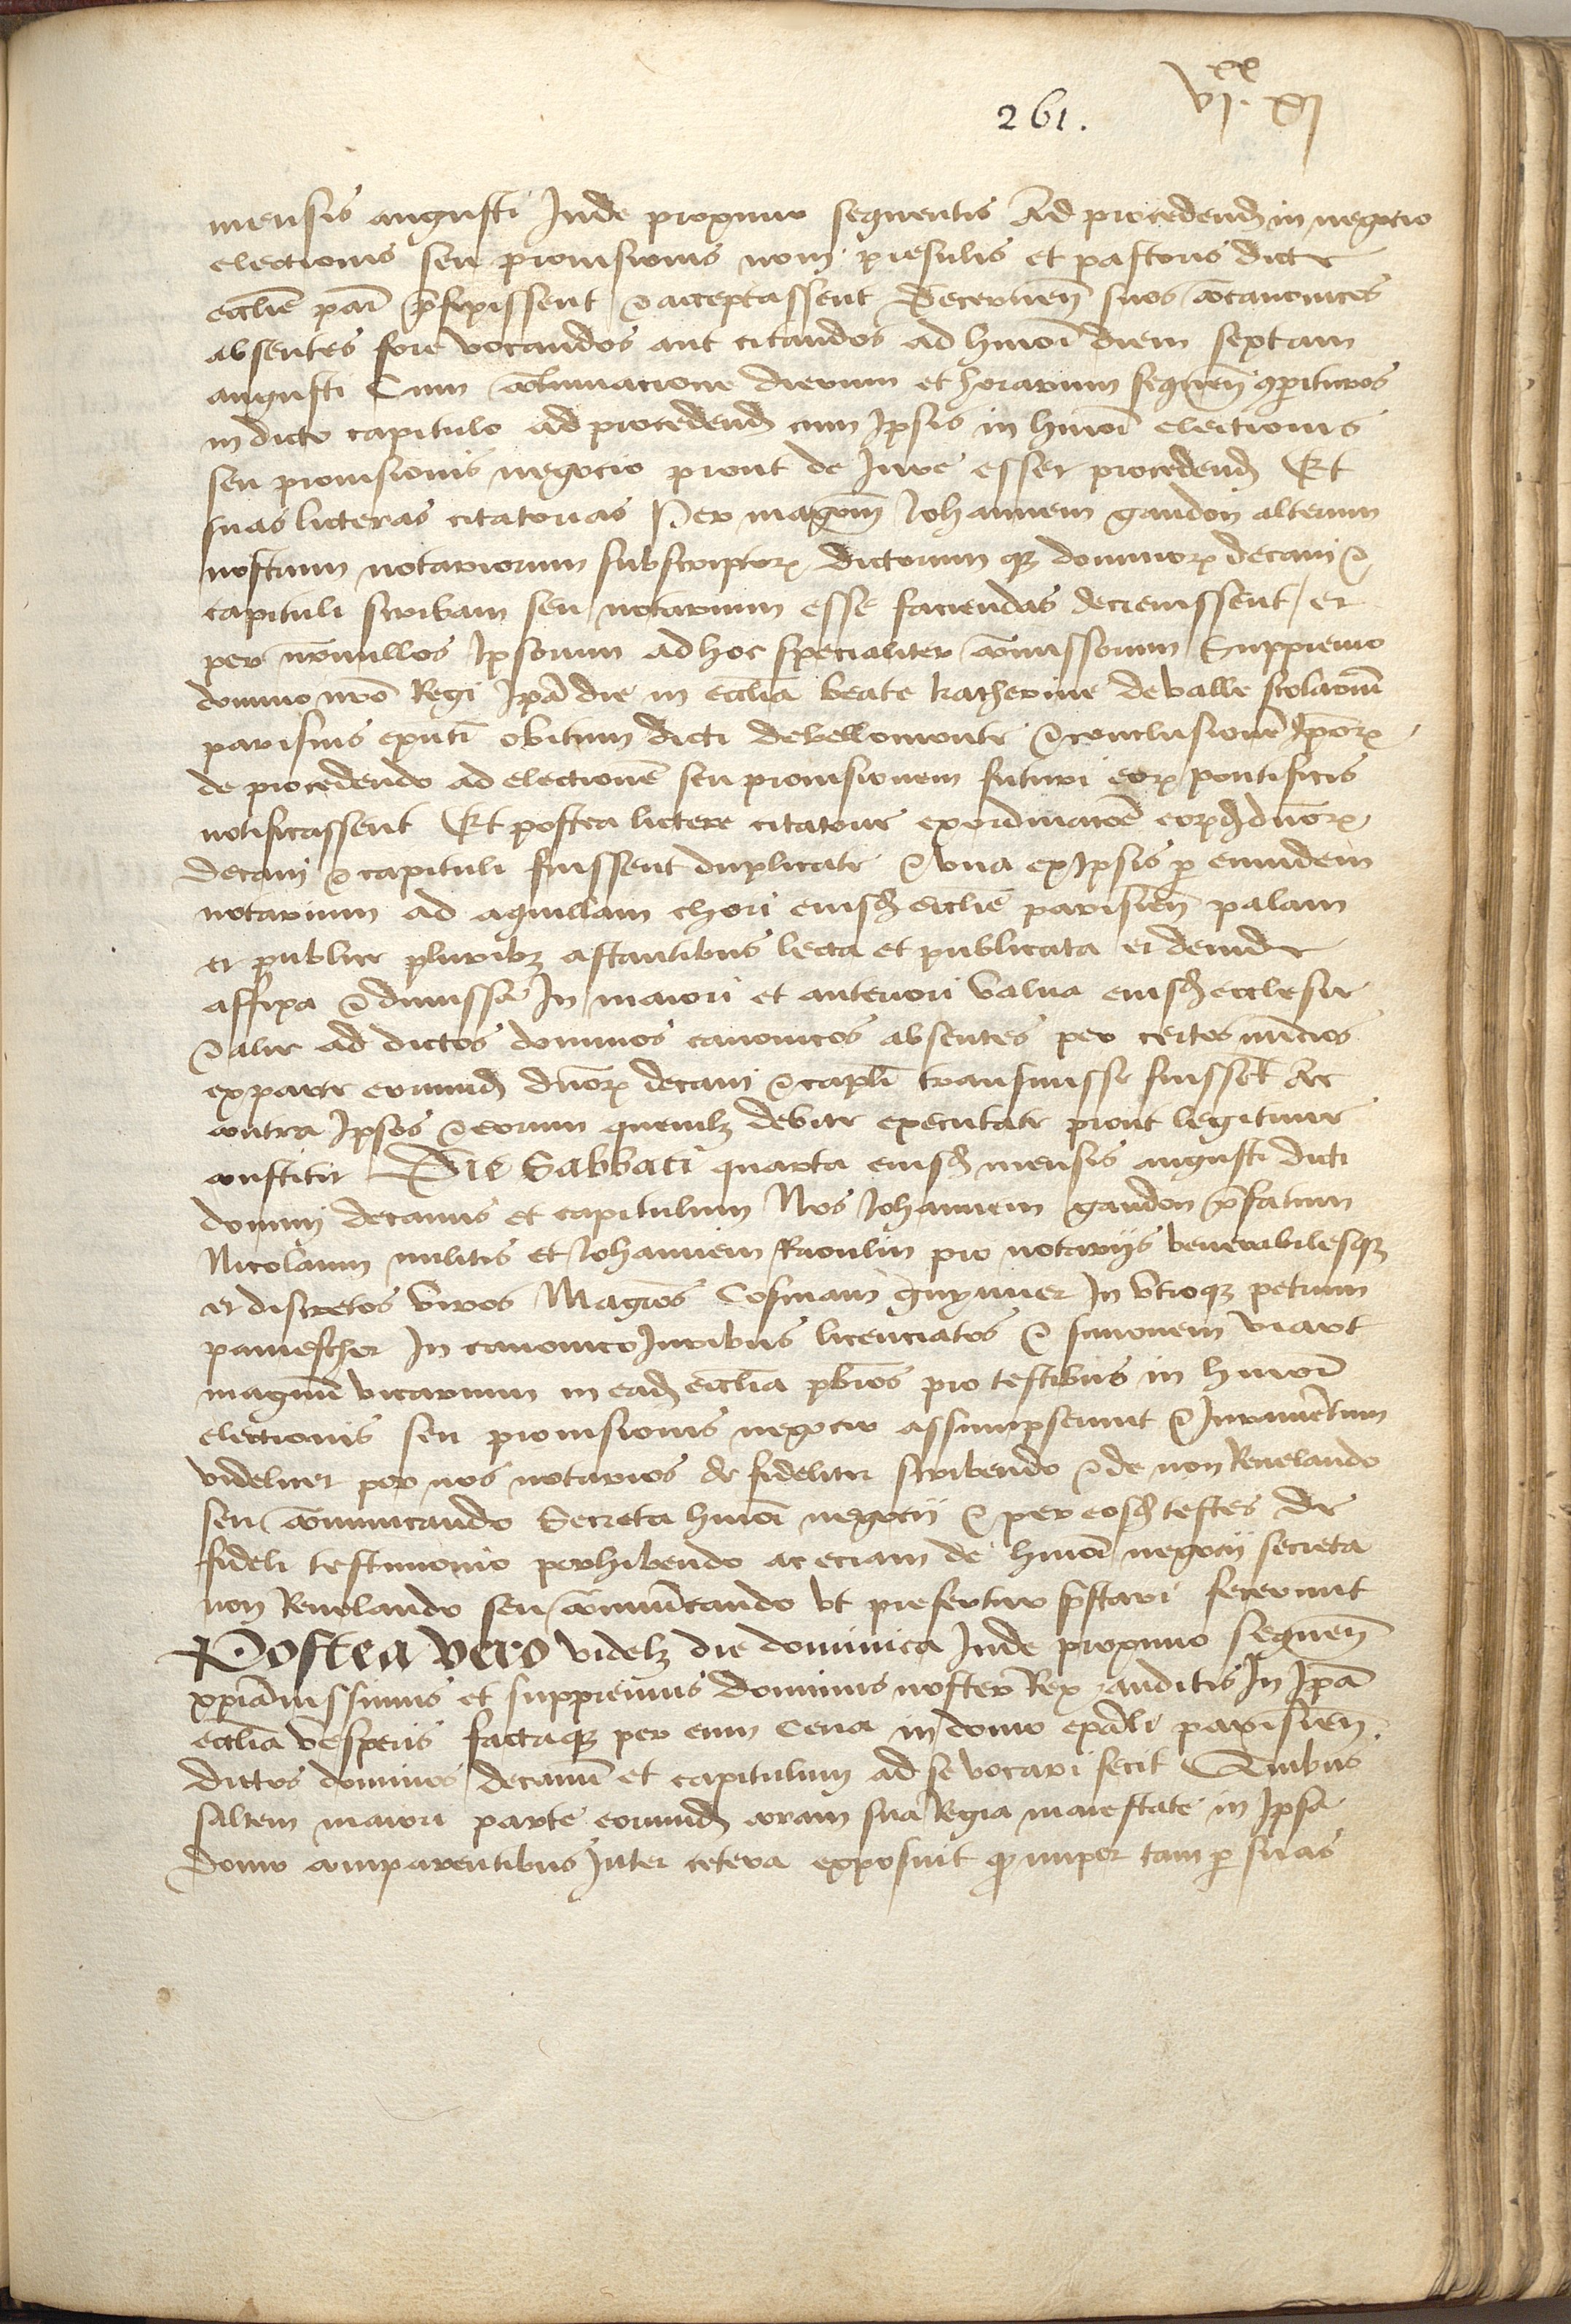 xx
261. vj. xij
mensis augusti Inde proximo sequentis Ad procedend in negocio
electionis seu prouisionis noui presulis et pastoris dicte
ecclie pari p̄fixissent ⁊ acceptassent Decernen̄ suos cōcanonicos
absentes fore vocandos aut citandos ad hmōi diem sextam
augusti Cum cōtinuacione dierum et horarum sequen̄ ꝯparituros
in dicto capitulo ad procedend cum Ipsis in hmōi electionis
seu prouisionis negocio prout de Iure esset procedend Et
suas litteras citatorias Per magrm̄ Johannem gaudon alterum
nostrum notariorum subscriptoꝝ dictorum qꝫ dominoꝝ decani ⁊
capituli scribam seu notarium esse faciendas decreuissent / et
per nōnullos Ipsorum ad hoc specialiter cōmissorum Suppremo
domino nrō Regi Ipā die in ecclia beate katherine de valle scolariū
parisius exn̄ti obitum dicti de bellomonte ⁊ conclusionē Ipōꝝ
de procedendo ad electionē seu prouisionem futuri eoꝝ pontificis
notificassent Et postea littere citatorie ex ordinacōe eoꝝd dn̄oꝝ
Decani ⁊ capituli fuissent duplicate ⁊ vna ex Ipsis ꝑ eumdem
notarium ad aquillam chori eiusd ecclie parisien̄ palam
et publice pluribꝫ astantibus lecta et publicata et deinde
affixa ⁊ dimissa In maiori et anteriori valua eiusd ecclesie
⁊ alie ad dictos dominos canonicos absentes per certos nūcios
ex parte eorumd dn̄oꝝ decani ⁊ capli transmisse fuissēt Ac
contra Ipsos ⁊ eorum quemlꝫ debite executate prout legitime
constitit Die Sabbati quarta eiusd mensis augusti dicti
domini decanus et capitulum Nos Johannem gaudon p̄fatum
Nicolaum militis et Johannem Raoulin pro notarijs venerabilesqꝫ
et discretos viros Magrōs Cosmam guymier In vtroqꝫ petrum
pamescher In canonico Iuribus licenciatos ⁊ simonem viart
magnū vicarium in ead ecclia pbrōs pro testibus in hmōi
electionis seu prouisionis negocio assumpserunt ⁊ Iuramētum
videlicet per nos notarios de fideliter scribendo ⁊ de non Reuelando
seu cōmunicando Secreta hmōi negocij ⁊ per eosd testes de
fideli testimonio perhibendo ac eciam de hmōi negocij secreta
non Reuelando seu cōmunicando vt prefertur p̄stari fecerunt
Postea vero videlꝫ die dominica Inde proximo sequen̄
xpianissimus et suppremus dominus noster Rex auditis In Ipā
ecclia vesperis factaqꝫ per eum cena in domo ep̄ali parisien̄
dictos dominos decanū et capitulum ad se vocari fecit Quibus
saltem maiori parte eorumd coram sua Regia maiestate in Ipsa
domo comparentibus Inter cetera exposuit ꝙ nuper tam ꝑ suas